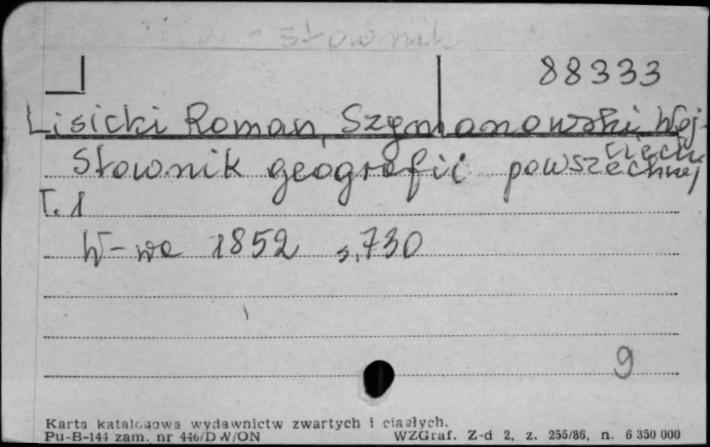 słownik
88333
Lisicki Roman, Szymanowski Woj-
ciech
Słownik geografii powszechnej
T. 1
W-wa 1852 s. 730
9
Karta katalogowa wydawnictw zwartych i ciągłych.
Pu-B-144 zam. nr 446/DW/ON WZGraf. Z-d 2, z. 255/86, n. 6 350 000